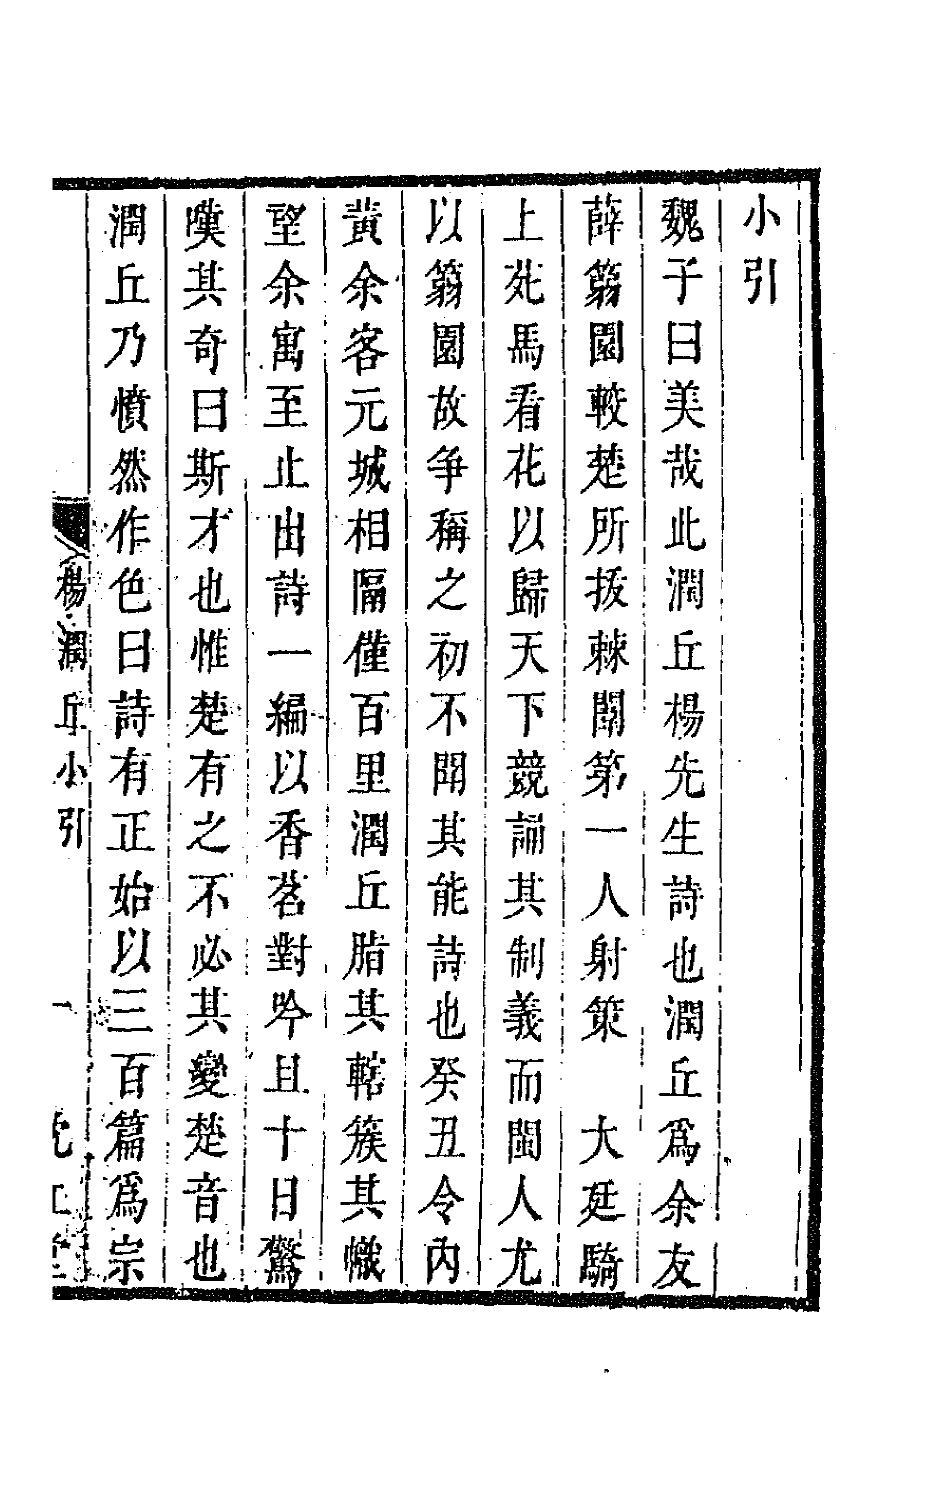 小引
魏子曰美哉此潤丘楊先生詩也潤丘爲余友
薛篛園較楚所拔棘闈第一人射策　大廷騎
上苑馬看花以歸天下競誦其制義而閩人尤
以篛園故争稱之初不聞其能詩也癸丑令内
黄余客元城相隔僅百里潤丘脂其轄簇其幟
望余寓至止出詩一編以香茗對吟且十日驚
嘆其奇曰斯才也惟楚有之不必其變楚音也
潤丘乃憤然作色曰詩有正始以三百篇爲宗
楊潤丘小引
一